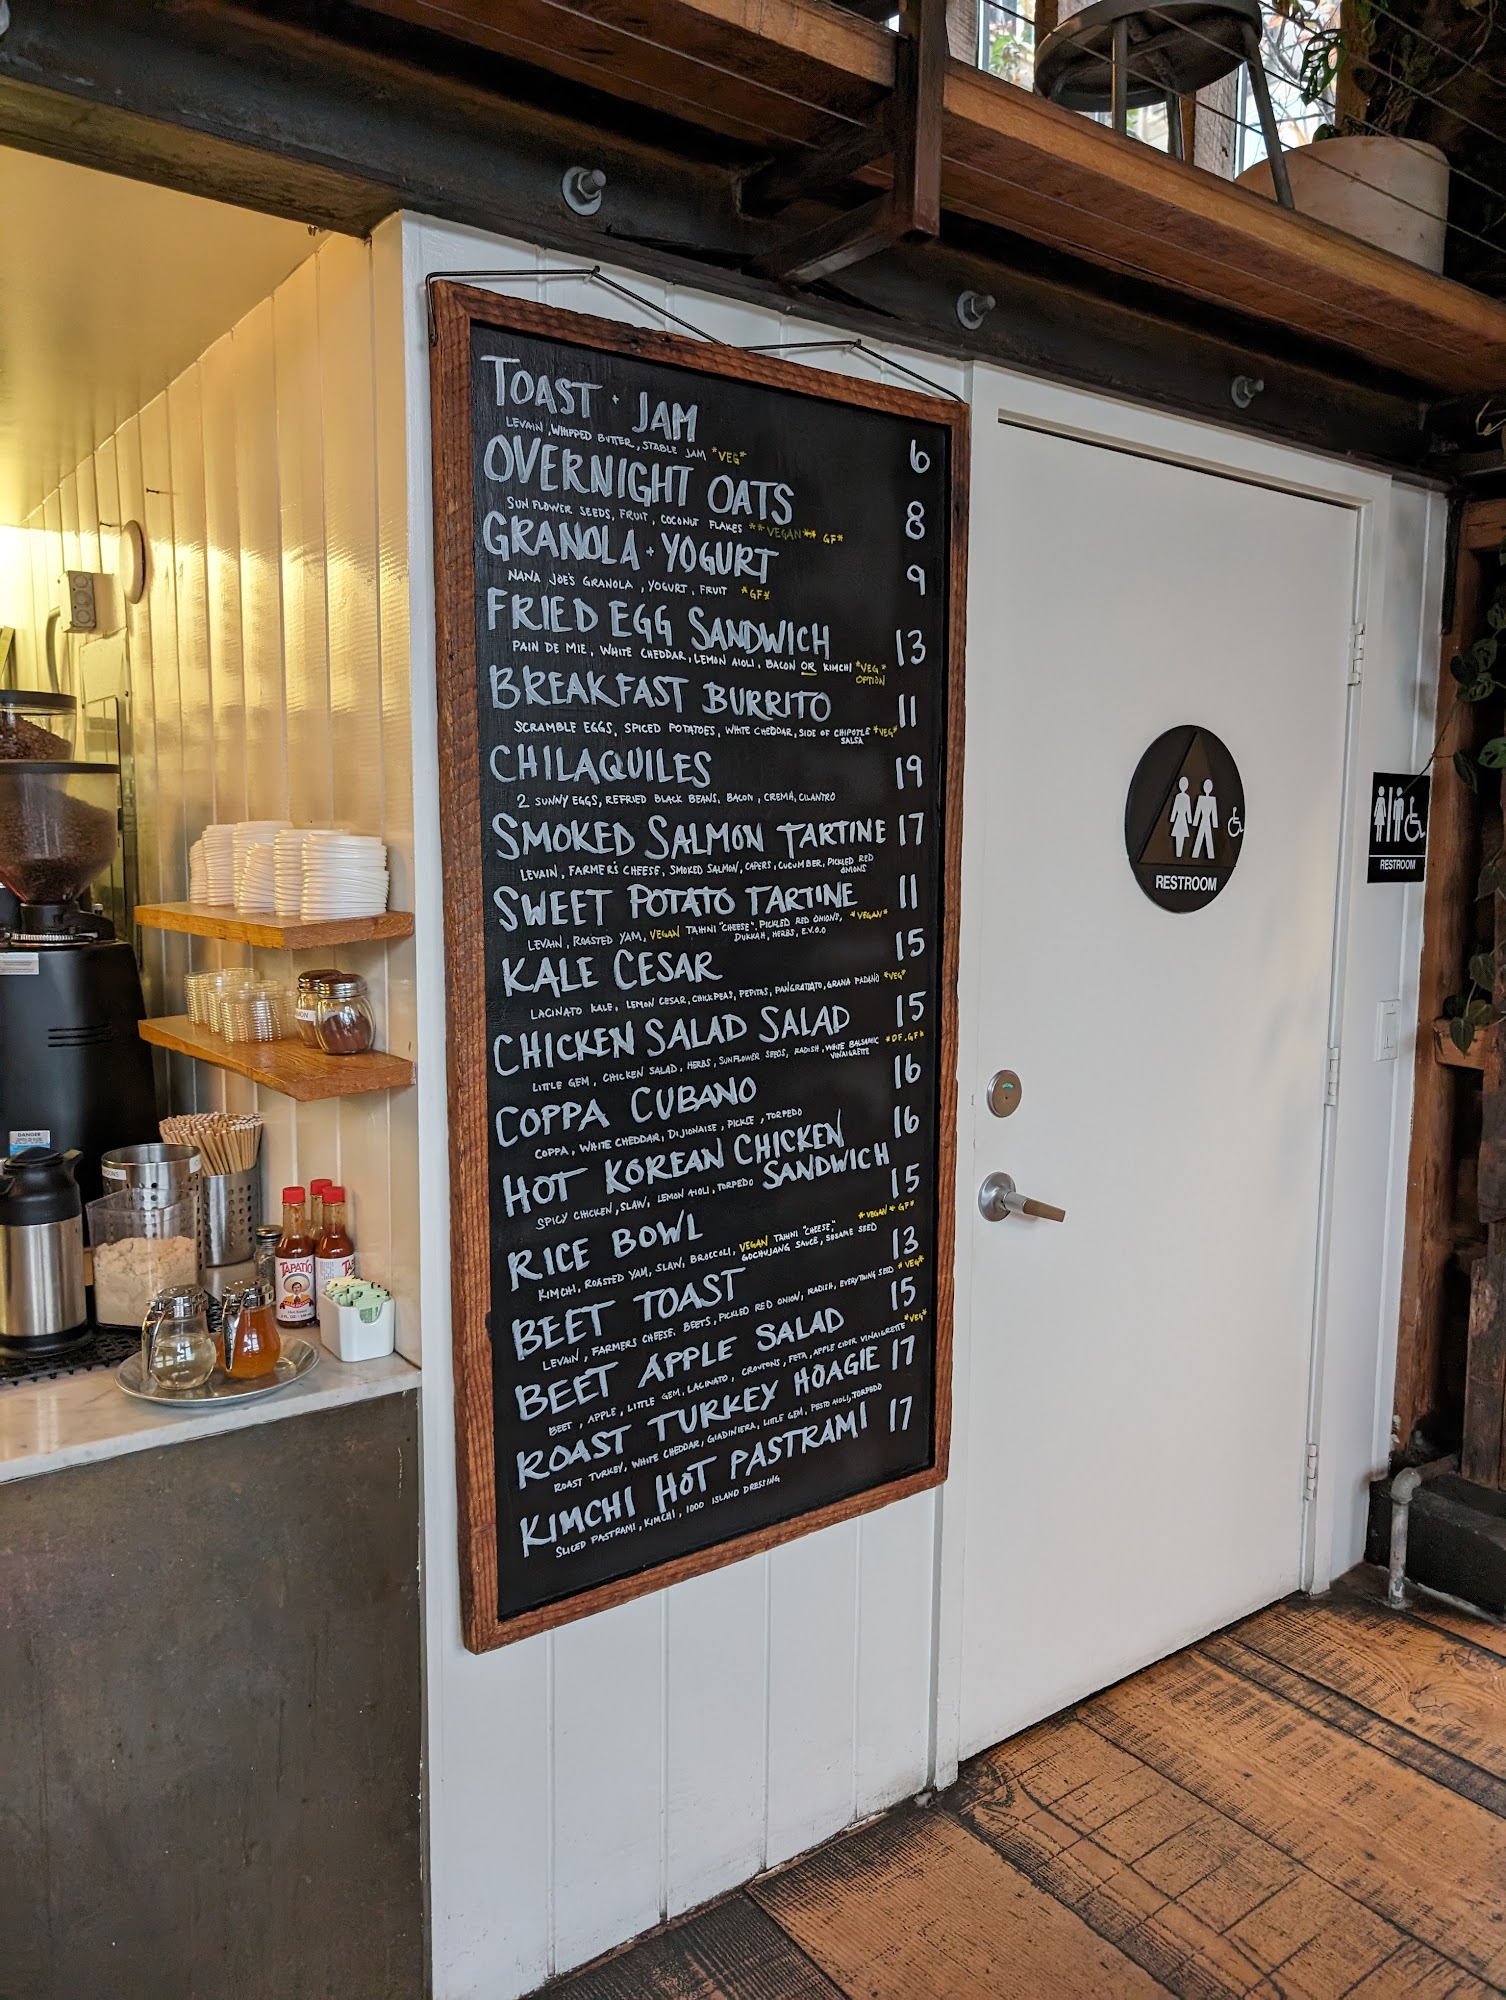 TOAST + JAM 6
LEVAIN, WHIPPED BUTTER, STABLE JAM *VEG*
OVERNIGHT OATS 8
SUNFLOWER SEEDS, FRUIT, COCONUT FLAKES **VEGAN** GF*
GRANOLA + YOGURT 9
NANA JOE'S GRANOLA, YOGURT, FRUIT *GF*
FRIED EGG SANDWICH 13
PAIN DE MIE, WHITE CHEDDAR, LEMON AIOLI, BACON OR KIMCHI *VEG*
OPTION
BREAKFAST BURRITO 11
SCRAMBLE EGGS, SPICED POTATOES, WHITE CHEDDAR, SIDE OF CHIPOTLE *VEG*
SALSA
CHILAQUILES 19
2 SUNNY EGGS, REFRIED BLACK BEANS, BACON, CREMA, CILANTRO
SMOKED SALMON TARTINE 17
LEVAIN, FARMER'S CHEESE, SMOKED SALMON, CAPERS, CUCUMBER, PICKLED RED
ONIONS
SWEET POTATO TARTINE 11
LEVAIN, ROASTED YAM, VEGAN TAHINI "CHEESE", PICKLED RED ONIONS, *VEGAN*
DUKKAH, HERBS, E.V.O.O
KALE CESAR 15
LACINATO KALE, LEMON CESAR, CHICKPEAS, PEPITAS, PANGRATTATO, GRANA PADANO *VEG*
CHICKEN SALAD SALAD 15
LITTLE GEM, CHICKEN SALAD, HERBS, SUNFLOWER SEEDS, RADISH, WHITE BALSAMIC *DF, GF*
VINAIGRETTE
COPPA CUBANO 16
COPPA, WHITE CHEDDAR, DIJIONAISE, PICKLE, TORPEDO
HOT KOREAN CHICKEN 16
SANDWICH
SPICY CHICKEN, SLAW, LEMON AIOLI, TORPEDO
RICE BOWL 15
KIMCHI, ROASTED YAM, SLAW, BROCCOLI, VEGAN TAHINI "CHEESE," *VEGAN * GF*
GOCHUJANG SAUCE, SESAME SEED
BEET TOAST 13
LEVAIN, FARMERS CHEESE, BEETS, PICKLED RED ONION, RADISH, EVERYTHING SEED *VEG*
BEET APPLE SALAD 15
BEET, APPLE, LITTLE GEM, LACINATO, CROUTONS, FETA, APPLE CIDER VINAIGRETTE *VEG*
ROAST TURKEY HOAGIE 17
ROAST TURKEY, WHITE CHEDDAR, GIADINIERA, LITTLE GEM, PESTO AIOLI, TORPEDO
KIMCHI HOT PASTRAMI 17
SLICED PASTRAMI, KIMCHI, 1000 ISLAND DRESSING
RESTROOM
RESTROOM
DANGER
TAPATIO